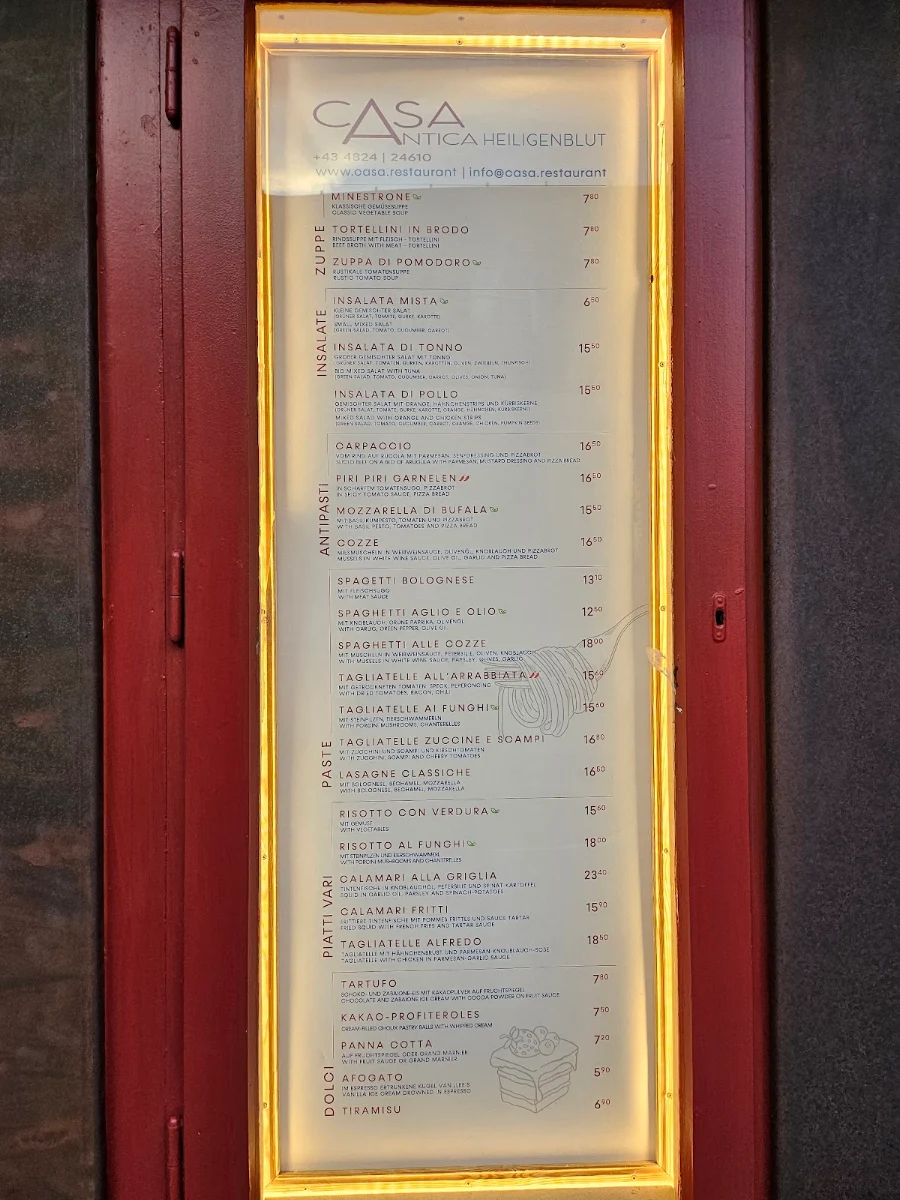 CASA
ANTICA HEILIGENBLUT
+43 4824 | 24610
www.casa.restaurant | info@casa.restaurant
ZUPPE
MINESTRONE 7⁸⁰
KLASSISCHE GEMÜSESUPPE
CLASSIC VEGETABLE SOUP
TORTELLINI IN BRODO 7⁸⁰
RINDSSUPPE MIT FLEISCH - TORTELLINI
BEEF BROTH WITH MEAT - TORTELLINI
ZUPPA DI POMODORO 7⁸⁰
RUSTIKALE TOMATENSUPPE
RUSTIC TOMATO SOUP
INSALATE
INSALATA MISTA 6⁵⁰
KLEINE GEMISCHTER SALAT
(GRÜNER SALAT, TOMATE, GURKE, KAROTTE)
SMALL MIXED SALAT
(GREEN SALAD, TOMATO, CUCUMBER, CARROT)
INSALATA DI TONNO 15⁵⁰
GROßER GEMISCHTER SALAT MIT TONNO
(GRÜNER SALAT, TOMATEN, GURKEN, KAROTTEN, OLIVEN, ZWIEBELN, THUNFISCH)
BIG MIXED SALAT WITH TUNA
(GREEN SALAD, TOMATO, CUCUMBER, CARROT, OLIVES, ONION, TUNA)
INSALATA DI POLLO 15⁵⁰
GEMISCHTER SALAT MIT ORANGE, HÄHNCHENSTRIPS UND KÜRBISKERNE
(GRÜNER SALAT, TOMATE, GURKE, KAROTTE, ORANGE, HÜHNCHEN, KÜRBISKERNE)
MIXED SALAD WITH ORANGE AND CHICKEN STRIPS
(GREEN SALAD, TOMATO, CUCUMBER, CAROT, ORANGE, CHICKEN, PUMPKIN SEEDS)
ANTIPASTI
CARPACCIO 16⁵⁰
VOM RIND AUF RUCOLA MIT PARMESAN, SENFDRESSING UND PIZZABROT
SLICED BEEF ON A BED OF ARUGULA WITH PARMESAN, MUSTARD DRESSING AND PIZZA BREAD
PIRI PIRI GARNELEN 16⁵⁰
IN SCHARFEM TOMATENSUGO, PIZZABROT
IN SPICY TOMATO SAUCE, PIZZA BREAD
MOZZARELLA DI BUFALA 15⁵⁰
MIT BASILIKUMPESTO, TOMATEN UND PIZZABROT
WITH BASIL PESTO, TOMATOES AND PIZZA BREAD
COZZE 16⁵⁰
MIESMUSCHELN IN WEIßWEINSAUCE, OLIVENÖL, KNOBLAUCH UND PIZZABROT
MUSSELS IN WHITE WINE SAUCE, OLIVE OIL, GARLIC AND PIZZA BREAD
PASTE
SPAGETTI BOLOGNESE 13¹⁰
MIT FLEISCHSUGO
WITH MEAT SAUCE
SPAGHETTI AGLIO E OLIO 12⁵⁰
MIT KNOBLAUCH, GRÜNE PAPRIKA, OLIVENÖL
WITH GARLIG, GREEN PEPPER, OLIVE OIL
SPAGHETTI ALLE COZZE 18⁰⁰
MIT MUSCHELN IN WEIßWEINSAUCE, PETERSILIE, OLIVEN, KNOBLAUCH
WITH MUSSELS IN WHITE WINE SAUCE, PARSLEY, OLIVES, GARLIC
TAGLIATELLE ALL'ARRABBIATA 15⁶⁰
MIT GETROCKNETEN TOMATEN, SPECK, PEPERONCINO
WITH DRIED TOMATOES, BACON, CHILI
TAGLIATELLE AI FUNGHI 15⁶⁰
MIT STEINPILZEN, EIERSCHWAMMERLN
WITH PORCINI MUSHROOMS, CHANTERELLES
TAGLIATELLE ZUCCINE E SCAMPI 16⁸⁰
MIT ZUCCHINI UND SCAMPI UND KIRSCHTOMATEN
WITH ZUCCHINI, SCAMPI AND CHERRY TOMATOES
LASAGNE CLASSICHE 16⁸⁰
MIT BOLOGNESE, BECHAMEL, MOZZARELLA
WITH BOLOGNESE, BECHAMEL, MOZZARELLA
PIATTI VARI
RISOTTO CON VERDURA 15⁶⁰
MIT GEMÜSE
WITH VEGETABLES
RISOTTO AL FUNGHI 18⁰⁰
MIT STEINPILZEN UND EIERSCHWAMMERL
WITH PORCINI MUSHROOMS AND CHANTERELLES
CALAMARI ALLA GRIGLIA 23⁴⁰
TINTENFISCHE IN KNOBLAUCHÖL, PETERSILIE UND SPINAT-KARTOFFEL
SQUID IN GARLIC OIL, PARSLEY AND SPINACH-POTATOES
CALAMARI FRITTI 15⁹⁰
FRITTIERT TINTENFISCHE MIT POMMES FRITTES UND SAUCE TARTAR
FRIED SQUID WITH FRENCH FRIES AND TARTAR SAUCE
TAGLIATELLE ALFREDO 18⁵⁰
TAGLIATELLE MIT HÄHNCHENBRUST UND PARMESAN-KNOUBLAUCH-SOßE
TAGLIATELLE WITH CHICKEN IN PARMESAN-GARLIC SAUCE
DOLCI
TARTUFO 7⁸⁰
SCHOKO- UND ZABAIONE-EIS MIT KAKAOPULVER AUF FRUCHTSPIEGEL
CHOCOLATE AND ZABAIONE ICE CREAM WITH COCOA POWDER ON FRUIT SAUCE
KAKAO-PROFITEROLES 7⁵⁰
CREAM-FILLED CHOUX PASTRY BALLS WITH WHIPPED CREAM
PANNA COTTA 7²⁰
AUF FRUCHTSPIEGEL ODER GRAND MARNIER
WITH FRUIT SAUCE OR GRAND MARNIER
AFOGATO 5⁹⁰
IM ESPRESSO ERTRUNKENE KUGEL VANILLEEIS
VANILLA ICE CREAM DROWNED IN ESPRESSO
TIRAMISU 6⁹⁰